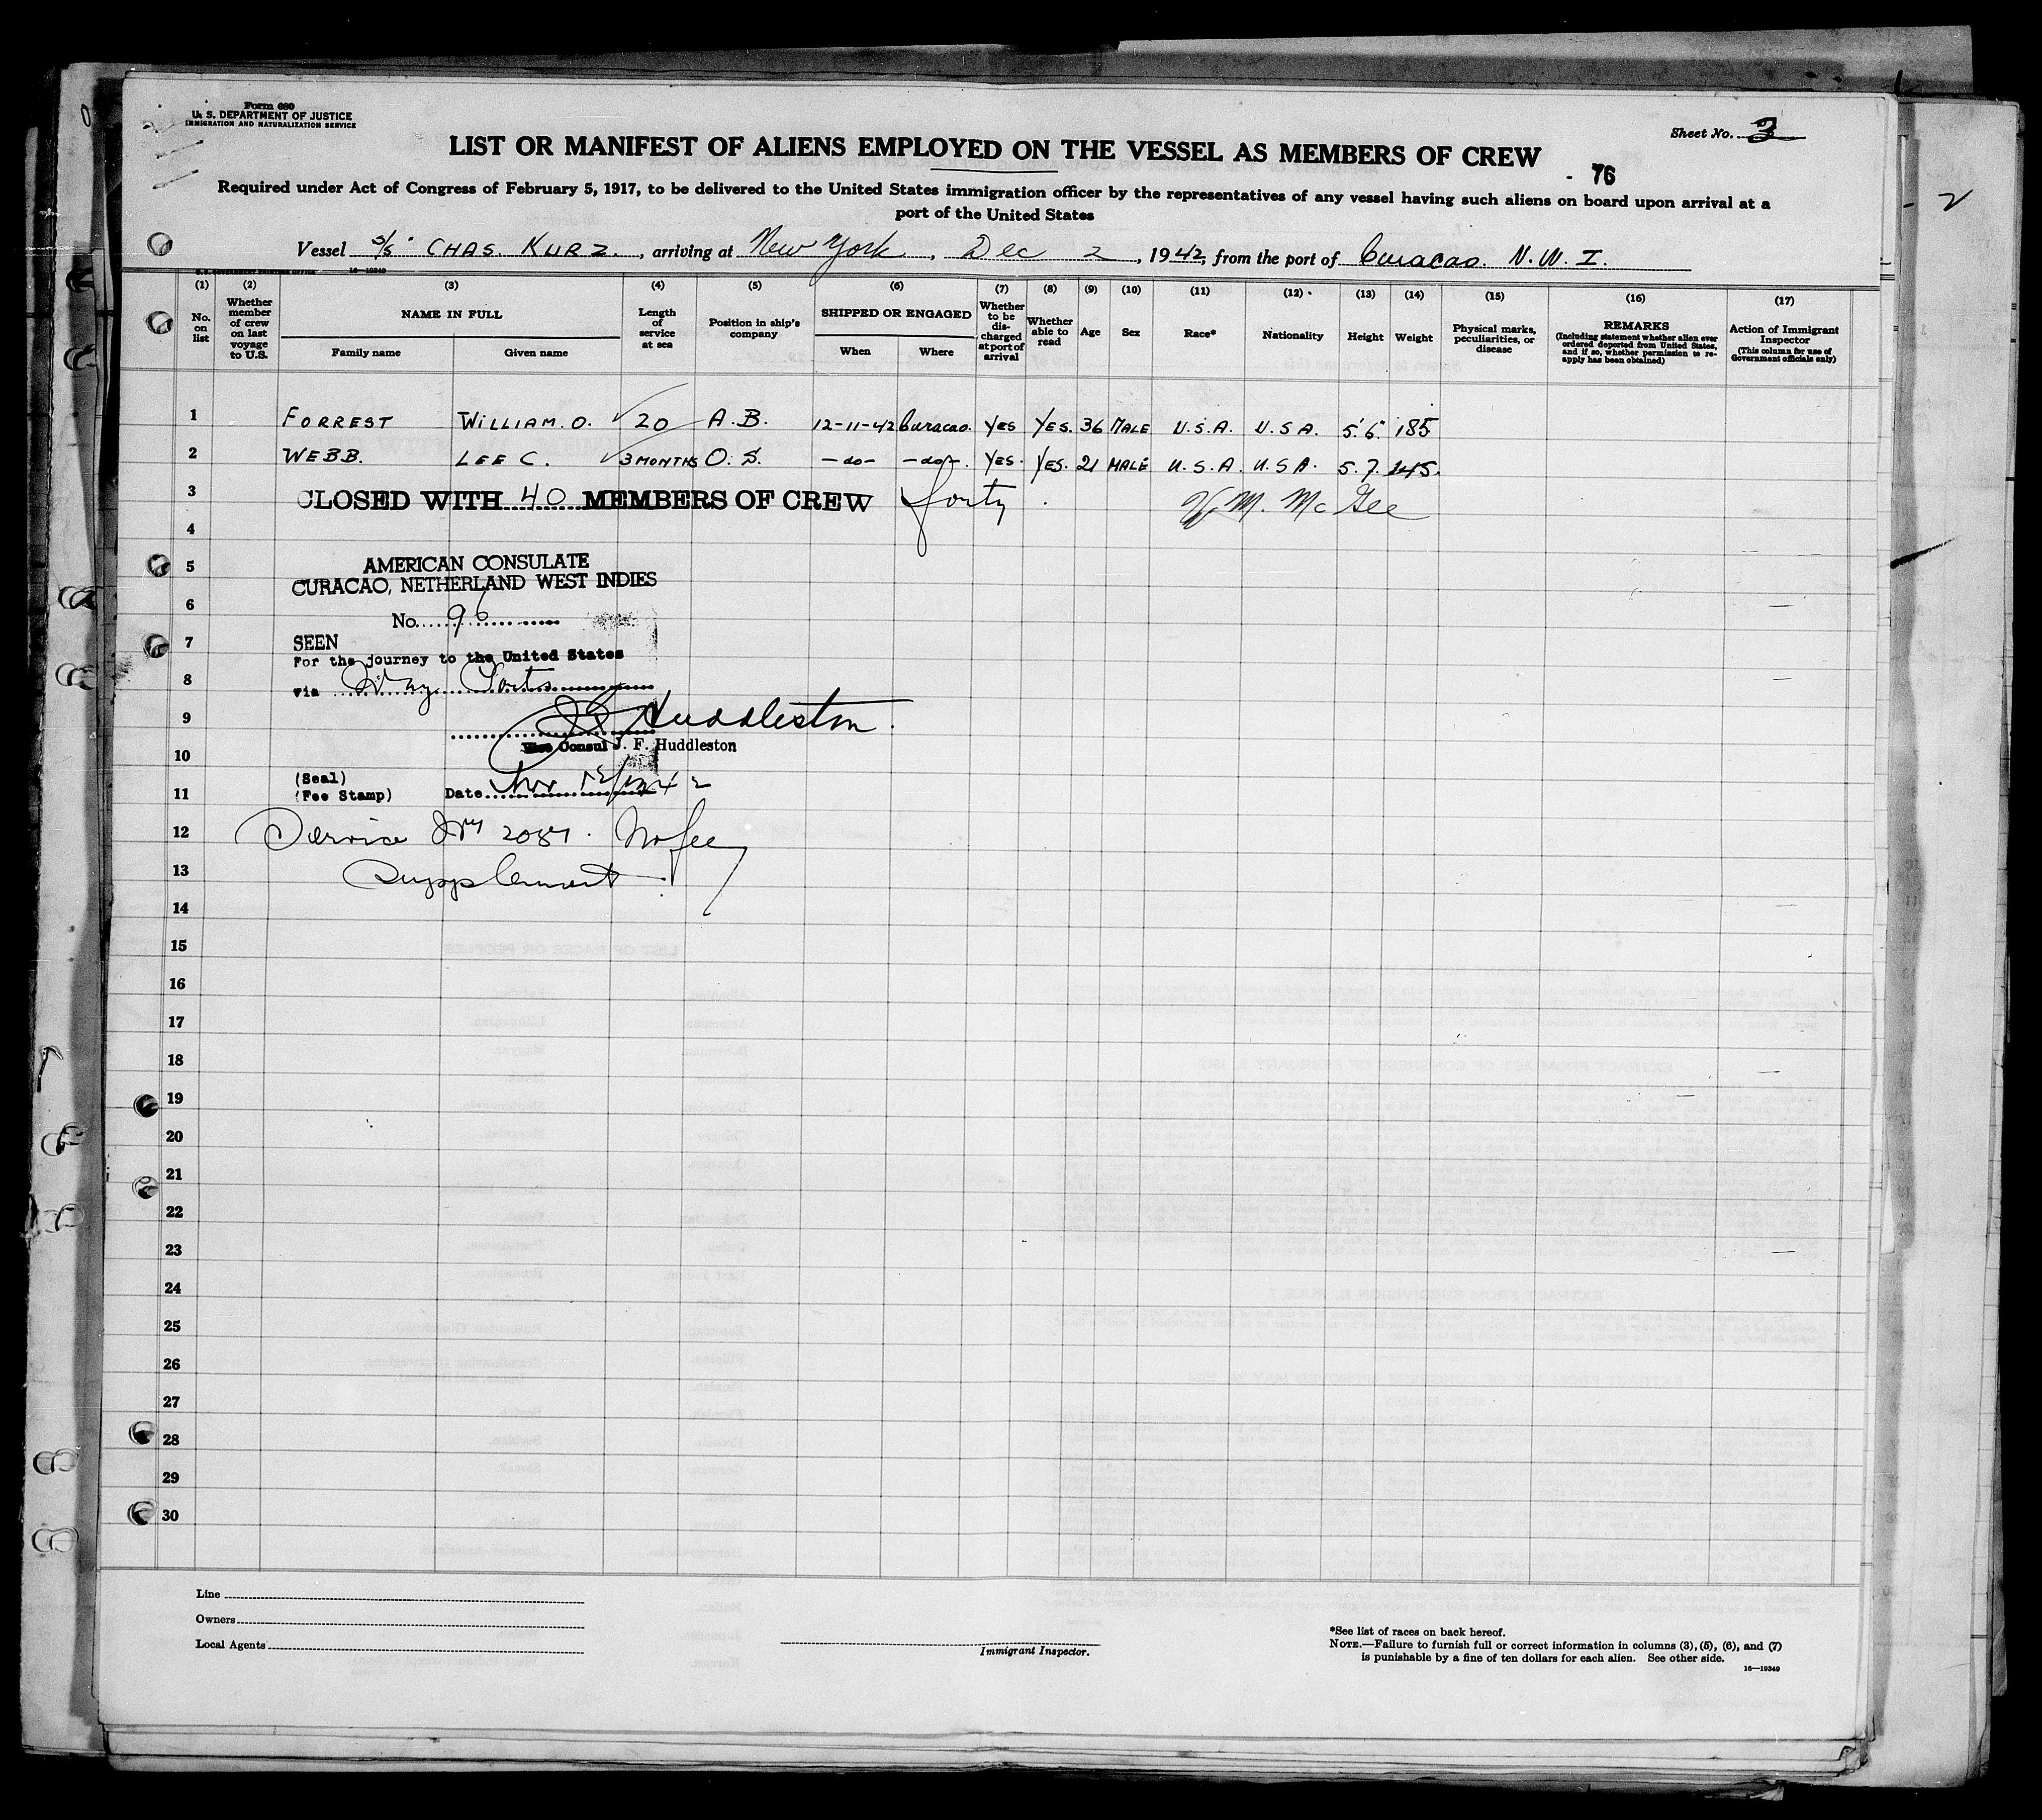 Form 680
U. S. DEPARTMENT OF JUSTICE
IMMIGRATION AND NATURALIZATION SERVICE
Sheet No. 3
LIST OR MANIFEST OF ALIENS EMPLOYED ON THE VESSEL AS MEMBERS OF CREW
- 76
Required under Act of Congress of February 5, 1917, to be delivered to the United States immigration officer by the representatives of any vessel having such aliens on board upon arrival at a
port of the United States
Vessel S/S CHAS. KURZ., arriving at New York, Dec 2, 1942, from the port of Curacao. N. W. I.
U. S. GOVERNMENT PRINTING OFFICE 16—19349
(1) (2) (3) (4) (5) (6) (7) (8) (9) (10) (11) (12) (13) (14) (15) (16) (17)
No. on list
Whether member of crew on last voyage to U.S.
NAME IN FULL
Family name
Given name
Length of service at sea
Position in ship's company
SHIPPED OR ENGAGED
When
Where
Whether to be discharged at port of arrival
Whether able to read
Age
Sex
Race*
Nationality
Height
Weight
Physical marks, peculiarities, or disease
REMARKS
(Including statement whether alien ever ordered deported from United States, and if so, whether permission to reapply has been obtained)
Action of Immigrant Inspector
(This column for use of Government officials only)
1 FORREST WILLIAM. O. 20 A.B. 12-11-42 Curacao. Yes Yes. 36 MALE U.S.A. U.S.A. 5'6" 185
2 WEBB. LEE C. 3 MONTHS O. S. -do- -do-. Yes. Yes. 21 MALE U.S.A. U.S.A. 5.7. 145.
3 CLOSED WITH 40 MEMBERS OF CREW forty. V. M. McGee
4
5 AMERICAN CONSULATE
CURACAO, NETHERLAND WEST INDIES
6
No. 96
7 SEEN
For the journey to the United States
8 via Way Ports
9 J F Huddleston.
Vice Consul J. F. Huddleston
10
(Seal)
11 (Fee Stamp) Date Nov 12/1942
12 Service No 2087. No fee
13 Supplement
14
15
16
17
18
19
20
21
22
23
24
25
26
27
28
29
30
Line
Owners
Local Agents
Immigrant Inspector.
*See list of races on back hereof.
NOTE.—Failure to furnish full or correct information in columns (3), (5), (6), and (7)
is punishable by a fine of ten dollars for each alien. See other side.
16—19349